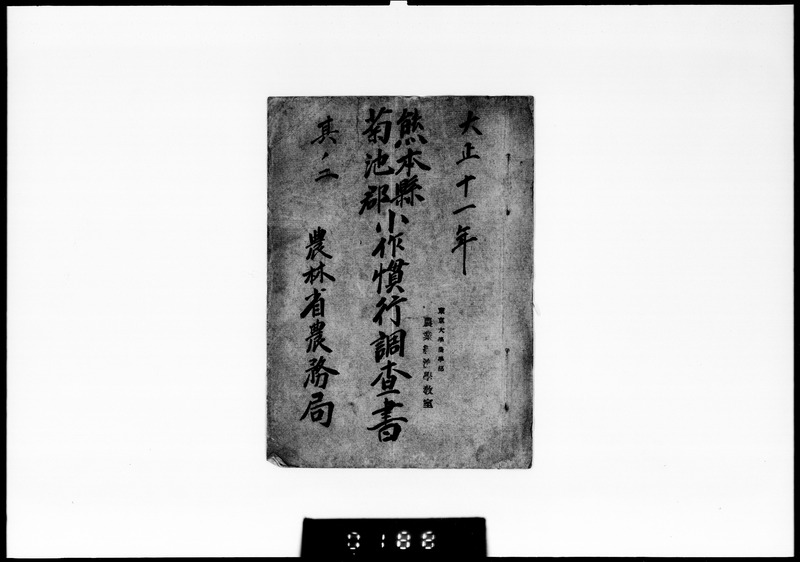 大正十一年
熊本縣
菊池郡
小作慣行調査書
其ノ二
農林省農務局
東京大學農學部
農業経済學教室
0188